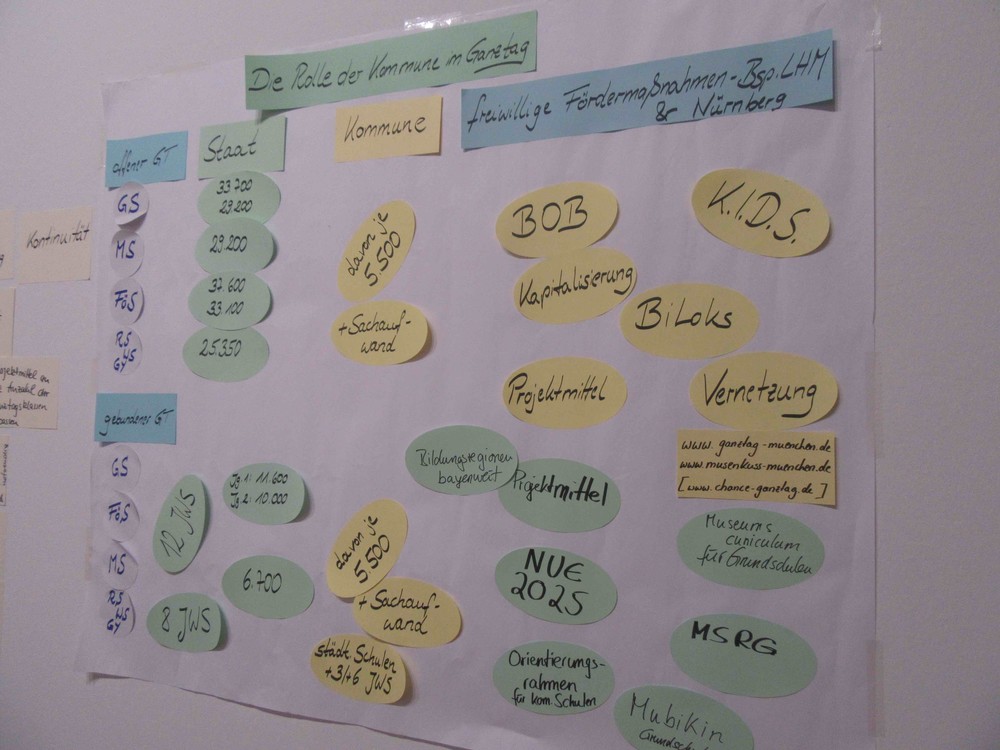 Die Rolle der Kommune im Ganztag
freiwillige Fördermaßnahmen - Bsp. LHM
& Nürnberg
offener GT
Staat
Kommune
GS
33 700
29.200
MS
29.200
FöS
37.600
33.100
RS
WS
GY
25.350
davon je
5.500
+ Sachauf-
wand
BOB
K.I.D.S.
Kapitalisierung
BiLoks
Projektmittel
Vernetzung
www.ganztag-muenchen.de
www.musenkuss-muenchen.de
[www.chance-ganztag.de]
gebundener GT
GS
FöS
MS
RS
WS
GY
12 JWS
8 JWS
Jg. 1: 11.600
Jg. 2: 10.000
6.700
davon je
5.500
+ Sachauf-
wand
städt. Schulen
+3/+6 JWS
Bildungsregionen
bayernweit
Projektmittel
Museums
curriculum
für Grundschulen
NUE
2025
MSRG
Orientierungs-
rahmen
für kom. Schulen
Mubikin
Kontinuität